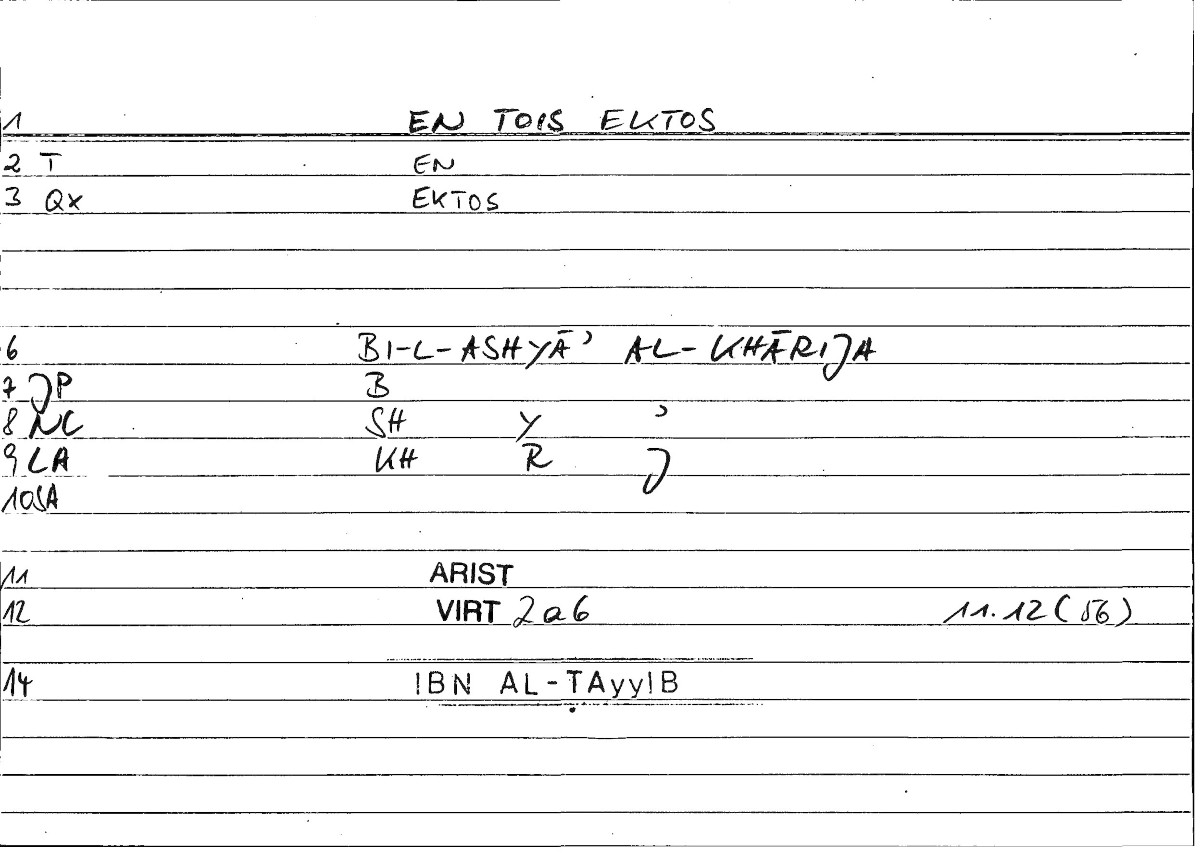 1 EN TOIS EKTOS
2 T EN
3 QX EKTOS
6 BI-L-ASHYĀʾ AL-KHĀRIJA
7 JP B
8 NC SH Y ʾ
9 LA KH R J
10 SA
11 ARIST
12 VIRT 2a6 11.12 (56)
14 IBN AL-ṬAyyIB